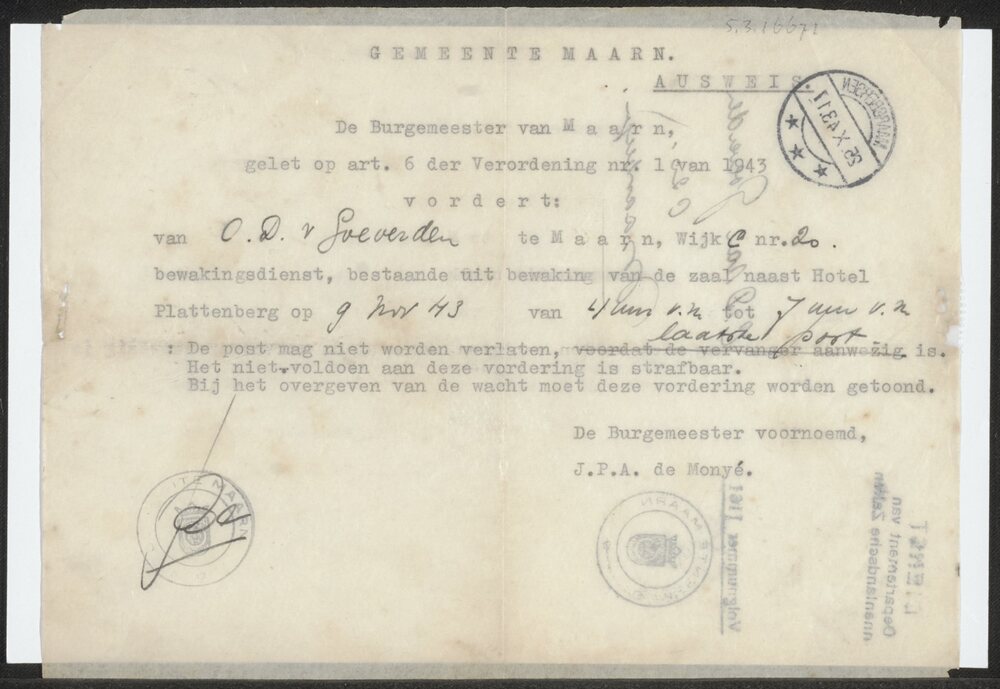 5.3.16671
GEMEENTE MAARN.
AUSWEIS.
De Burgemeester van Maarn,
gelet op art. 6 der Verordening nr. 1 van 1943
vordert:
van O. D. v Goeverden te Maarn, Wijk C nr. 20.
bewakingsdienst, bestaande uit bewaking van de zaal naast Hotel
Plattenberg op 9 Nov 43 van 4 uur v.m tot 7 uur v.m
laatste post
De post mag niet worden verlaten, voordat de vervanger aanwezig is.
Het niet voldoen aan deze vordering is strafbaar.
Bij het overgeven van de wacht moet deze vordering worden getoond.
De Burgemeester voornoemd,
J.P.A. de Monyé.
TE MAARN
MAARN
Volgnummer 1161
DIENST
Departement van
Binnenlandsche Zaken